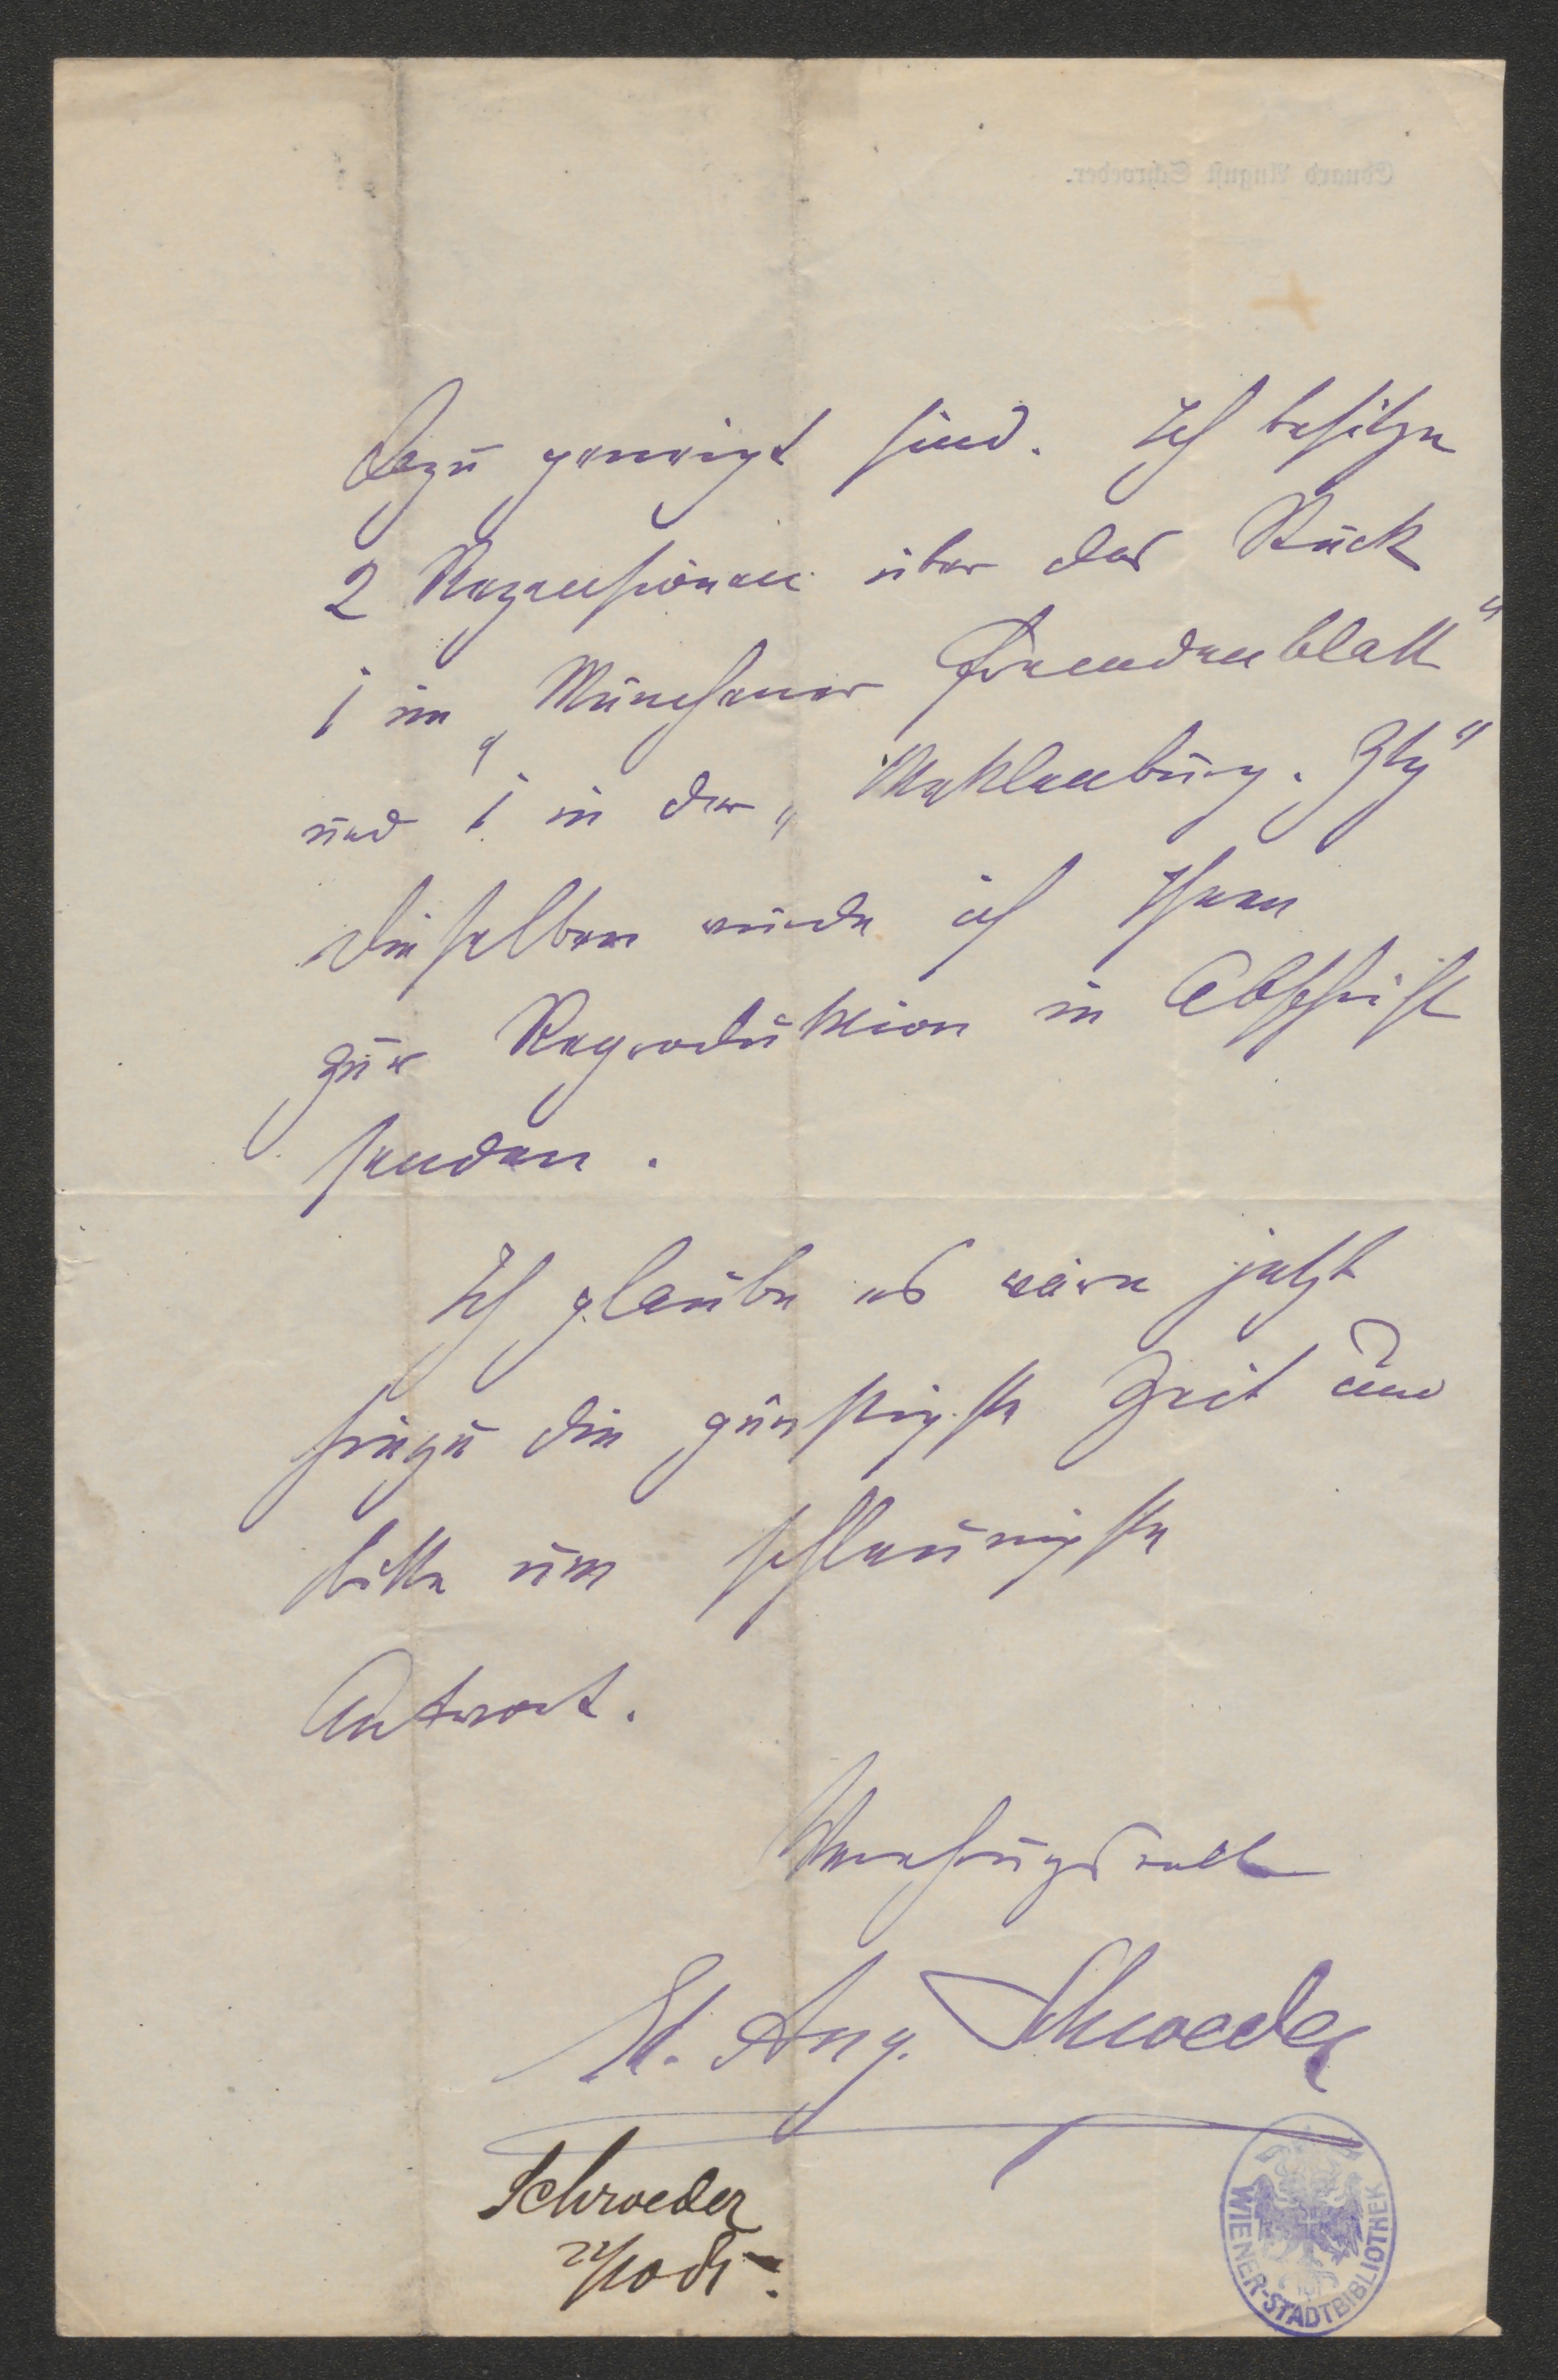 Eduard August Schroeder.
dazu geneigt sind. Ich besitze
2 Rezensionen über das Stück
1 im „Münchener Fremdenblatt"
und 1 in der „Meklenburg. Ztg"
dieselben würde ich Ihnen
zur Reproduktion in Abschrift
senden.
Ich glaube es wäre jetzt
hiezu die günstigste Zeit und
bitte um schleunigste
Antwort.
Hochachtungsvoll
Ed. Aug. Schroeder
Schroeder
WIENER-STADTBIBLIOTHEK